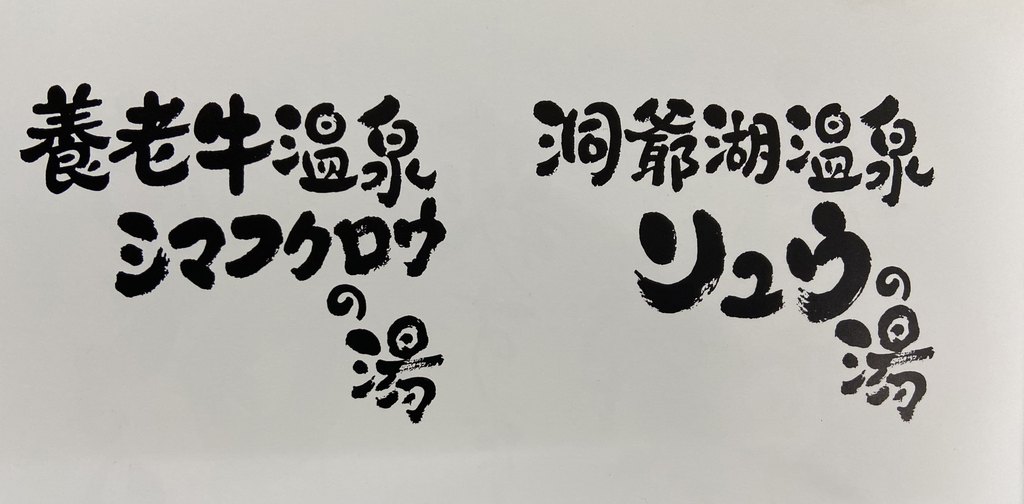 養老牛温泉
シマフクロウ
の
湯
洞爺湖温泉
リュウの
湯